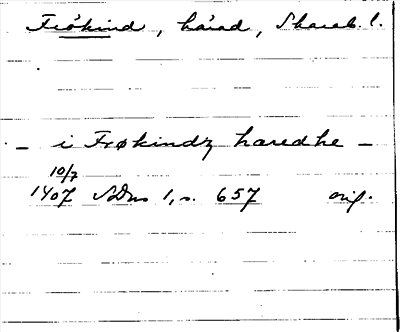 Frökind, härad, Skarab. l.
- i Frøkindz haredhe -
10/7
1407 SDns 1, s. 657 orig.